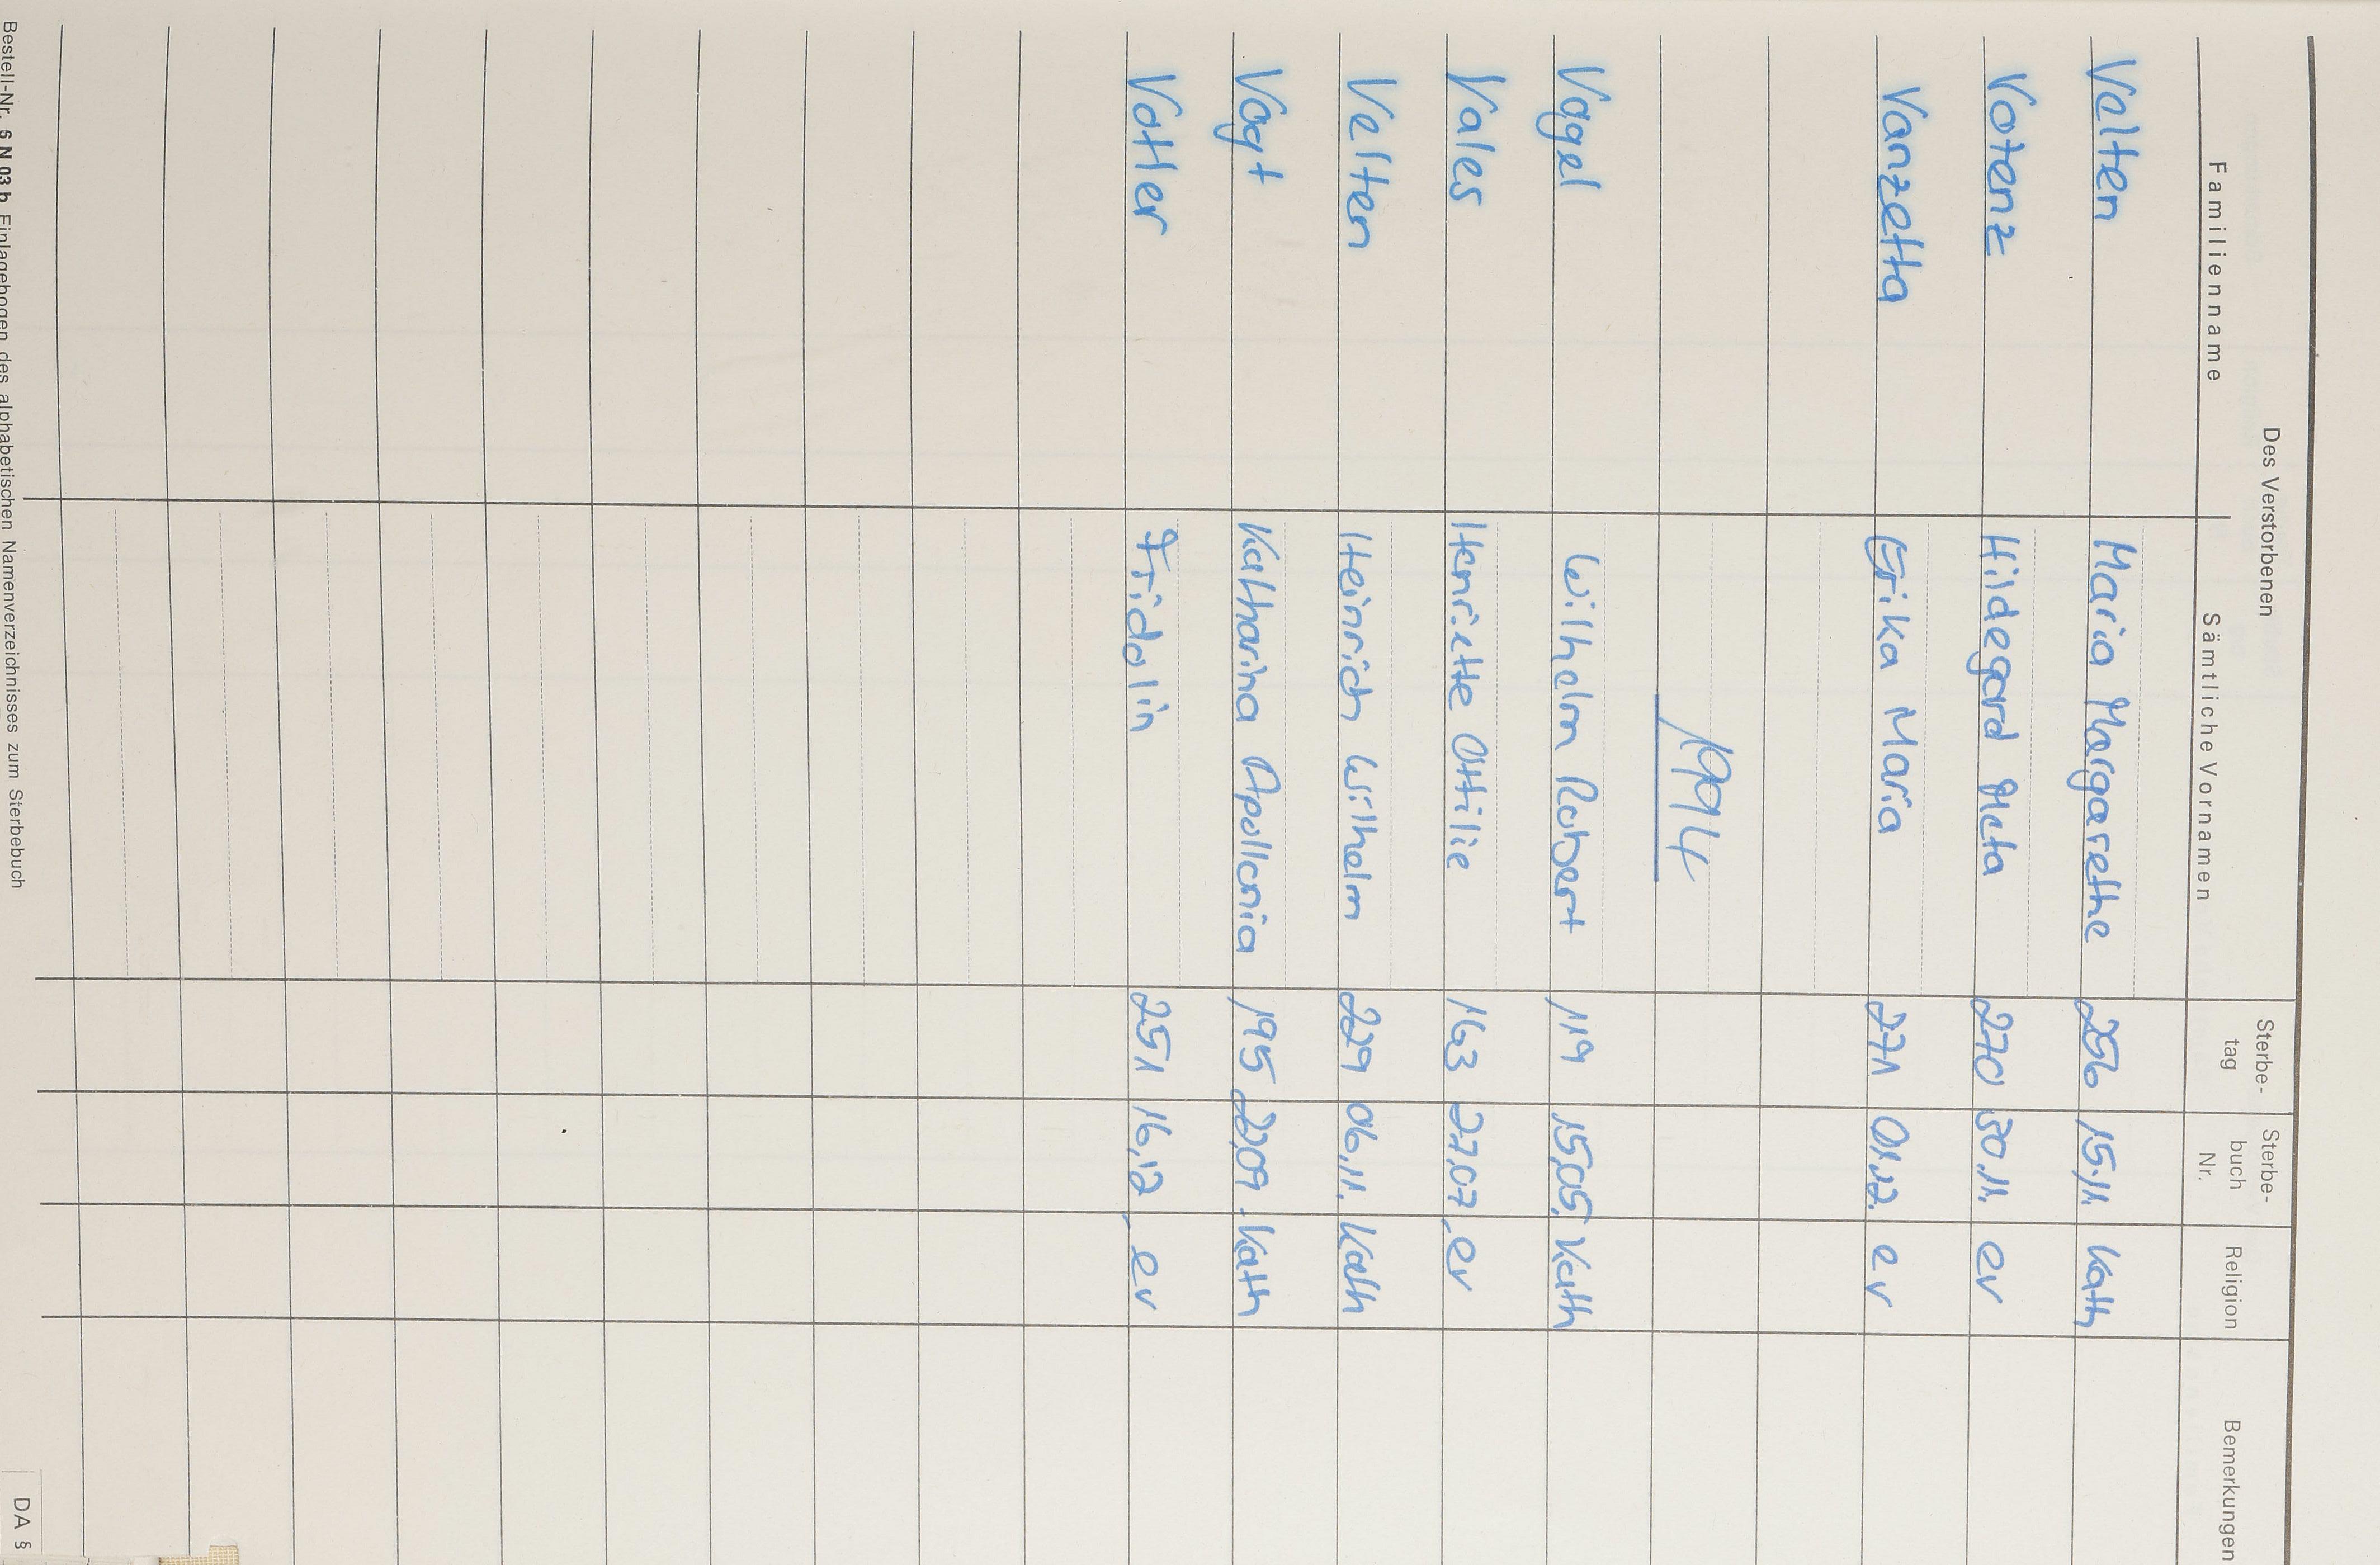 Des Verstorbenen
Familienname Sämtliche Vornamen Sterbe-tag Sterbe-buch Nr. Religion Bemerkungen
Velten Maria Margarethe 256 15.11 kath
Votenz Hildegard Meta 270 30.11. ev
Vanzetta Erika Maria 271 01.12. ev
1994
Vogel Wilhelm Robert 119 15.05. kath
Vales Henriette Ottilie 163 27.07. ev
Velten Heinrich Wilhelm 229 06.11. kath
Vogt Katharina Apollonia 195 22.09. kath
Votler Fridolin 251 16.12. ev
Bestell-Nr. § N 03 b Einlagebogen des alphabetischen Namenverzeichnisses zum Sterbebuch
DA §